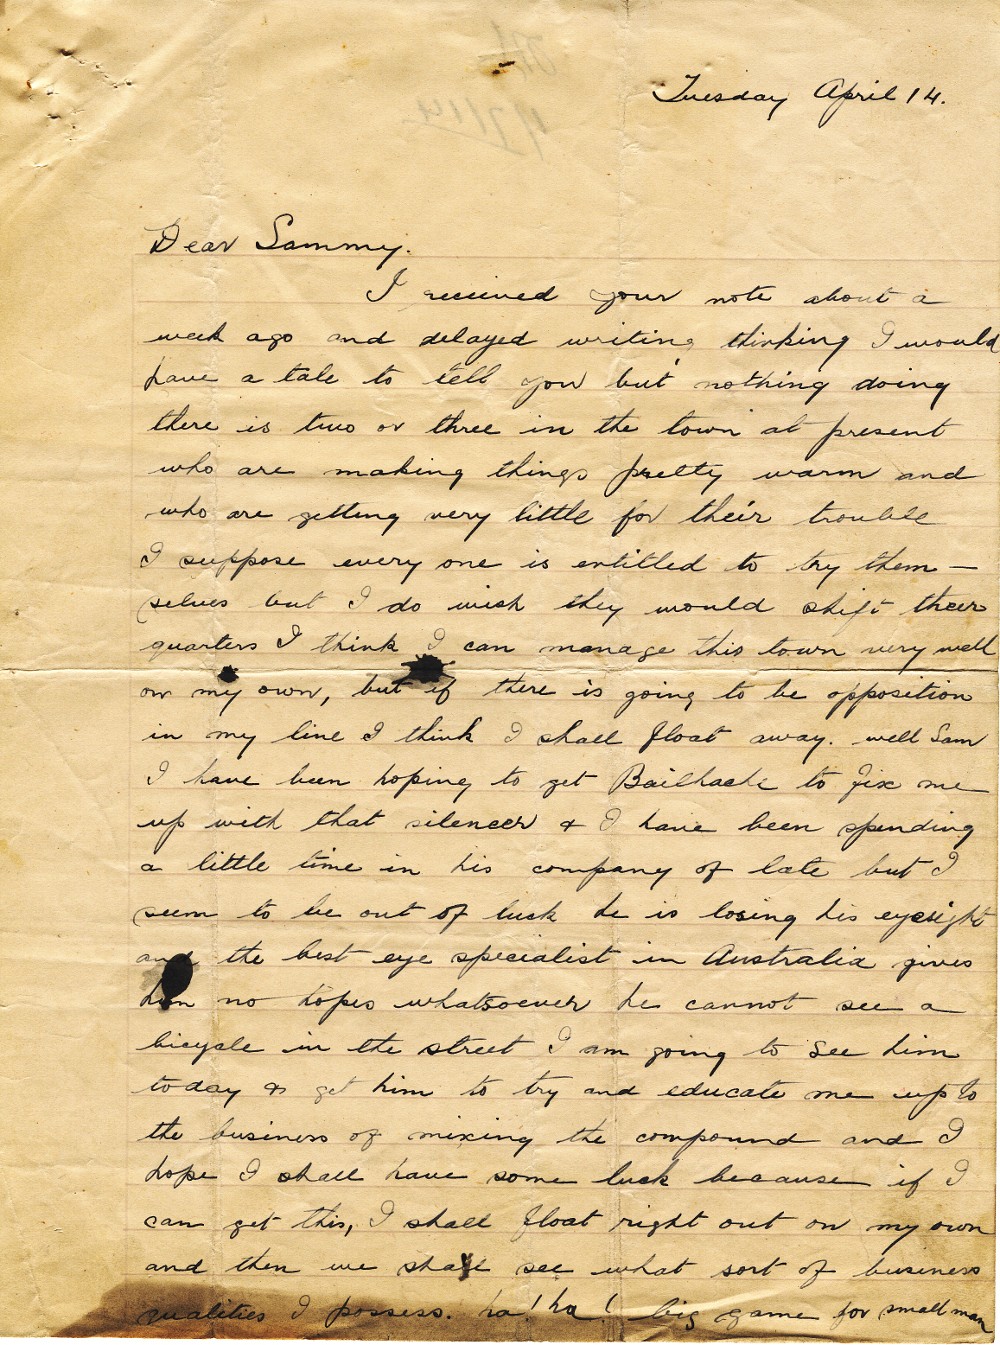 Tuesday April 14.
Dear Sammy.
I received your note about a
week ago and delayed writing thinking I would
have a tale to tell you but nothing doing
there is two or three in the town at present
who are making things pretty warm and
who are getting very little for their trouble
I suppose every one is entitled to try them-
selves but I do wish they would shift their
quarters I think I can manage this town very well
on my own, but if there is going to be opposition
in my line I think I shall float away. well Sam
I have been hoping to get Bailhache to fix me
up with that silencer & I have been spending
a little time in his company of late but I
seem to be out of luck he is losing his eyesight
and the best eye specialist in Australia gives
him no hopes whatsoever he cannot see a
bicycle in the street I am going to see him
today & get him to try and educate me up to
the business of mixing the compound and I
hope I shall have some luck because if I
can get this, I shall float right out on my own
and then we shall see what sort of business
qualities I possess. ha! ha! big game for small man